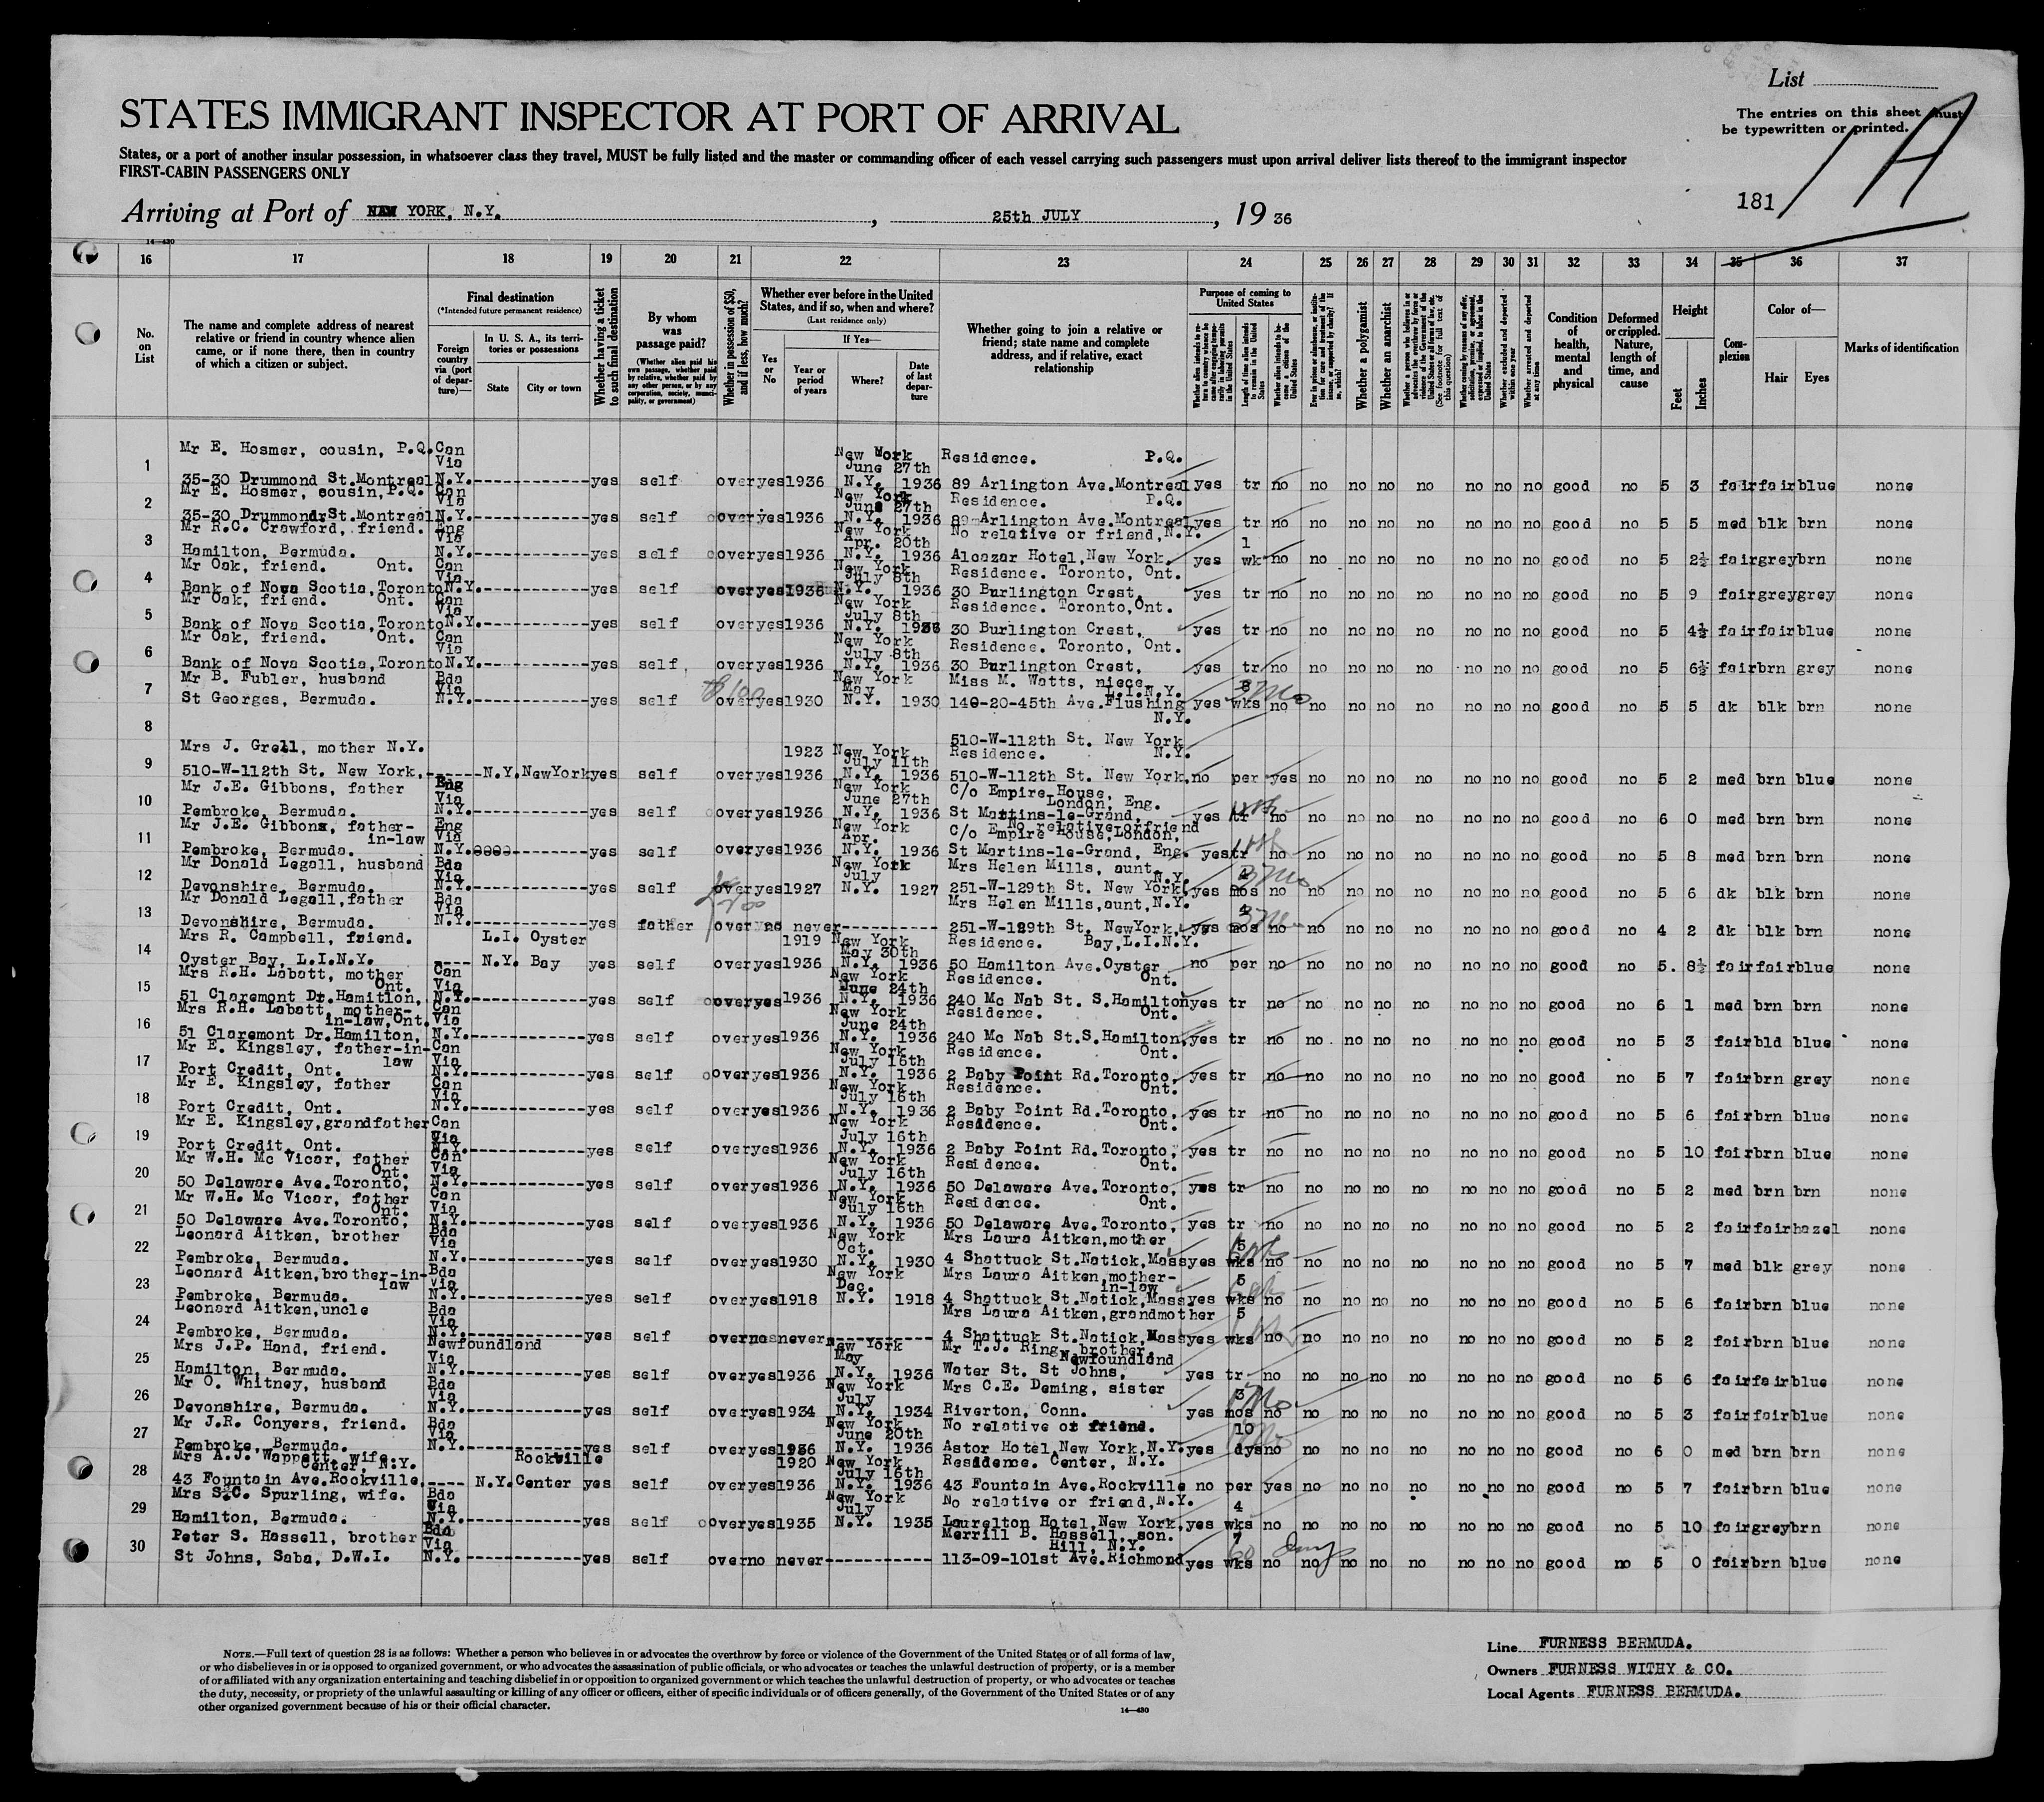 List
The entries on this sheet must
be typewritten or printed.
1A
STATES IMMIGRANT INSPECTOR AT PORT OF ARRIVAL
States, or a port of another insular possession, in whatsoever class they travel, MUST be fully listed and the master or commanding officer of each vessel carrying such passengers must upon arrival deliver lists thereof to the immigrant inspector
FIRST-CABIN PASSENGERS ONLY
181
Arriving at Port of NEW YORK, N.Y. , 25th JULY , 19 36
14—430
16 17 18 19 20 21 22 23 24 25 26 27 28 29 30 31 32 33 34 35 36 37
No. on List
The name and complete address of nearest relative or friend in country whence alien came, or if none there, then in country of which a citizen or subject.
Final destination
(*Intended future permanent residence)
Foreign country via (port of departure)—
In U. S. A., its territories or possessions
State City or town
Whether having a ticket to such final destination
By whom was passage paid?
(Whether alien paid his own passage, whether paid by relative, whether paid by any other person, or by any corporation, society, municipality, or government)
Whether in possession of $50, and if less, how much?
Whether ever before in the United States, and if so, when and where?
(Last residence only)
If Yes—
Yes or No
Year or period of years
Where?
Date of last departure
Whether going to join a relative or friend; state name and complete address, and if relative, exact relationship
Purpose of coming to United States
Length of time alien intends to remain in the United States
Whether alien intends to become a citizen of the United States
Whether a polygamist
Whether an anarchist
Whether excluded and deported within one year
Whether arrested and deported at any time
Condition of health, mental and physical
Deformed or crippled. Nature, length of time, and cause
Height
Feet Inches
Complexion
Color of—
Hair Eyes
Marks of identification
1 Mr E. Hosmer, cousin, P.Q. Can Via New York June 27th Residence. P.Q.
35-30 Drummond St.Montreal N.Y. yes self over yes 1936 N.Y. 1936 89 Arlington Ave.Montreal yes tr no no no no no no no no good no 5 3 fair fair blue none
2 Mr E. Hosmer, cousin, P.Q. Can Via New York June 27th Residence. P.Q.
35-30 Drummond St.Montreal N.Y. yes self over yes 1936 N.Y. 1936 89 Arlington Ave.Montreal yes tr no no no no no no no no good no 5 5 med blk brn none
3 Mr R.C. Crawford, friend. Eng Via New York Apr. 20th No relative or friend, N.Y. 1
Hamilton, Bermuda. N.Y. yes self over yes 1936 N.Y. 1936 Alcazar Hotel, New York. yes wk no no no no no no no no good no 5 2½ fair grey brn none
4 Mr Oak, friend. Ont. Can Via New York July 8th Residence. Toronto, Ont.
Bank of Nova Scotia, Toronto N.Y. yes self over yes 1936 N.Y. 1936 30 Burlington Crest. yes tr no no no no no no no no good no 5 9 fair grey grey none
5 Mr Oak, friend. Ont. Can Via New York July 8th Residence. Toronto, Ont.
Bank of Nova Scotia, Toronto N.Y. yes self over yes 1936 N.Y. 1936 30 Burlington Crest. yes tr no no no no no no no no good no 5 4½ fair fair blue none
6 Mr Oak, friend. Ont. Can Via New York July 8th Residence. Toronto, Ont.
Bank of Nova Scotia, Toronto N.Y. yes self over yes 1936 N.Y. 1936 30 Burlington Crest. yes tr no no no no no no no no good no 5 6½ fair brn grey none
7 Mr B. Fubler, husband Bda Via $100 New York May Miss M. Watts, niece L.I.N.Y. 8 3 mo
St Georges, Bermuda. N.Y. yes self over yes 1930 N.Y. 1930 140-20-45th Ave.Flushing yes wks no no no no no no no no good no 5 5 dk blk brn none
N.Y.
8
510-W-112th St. New York
9 Mrs J. Grell, mother N.Y. 1923 New York July 11th Residence. N.Y.
510-W-112th St. New York. N.Y. New York yes self over yes 1936 N.Y. 1936 510-W-112th St. New York. no per yes no no no no no no no good no 5 2 med brn blue none
10 Mr J.E. Gibbons, father Eng Via New York June 27th C/o Empire House, London, Eng.
Pembroke, Bermuda. N.Y. yes self over yes 1936 N.Y. 1936 St Martins-le-Grand, yes tr no no no no no no no no good no 6 0 med brn brn none
No relative or friend
11 Mr J.E. Gibbons, father-in-law Eng Via New York Apr. C/o Empire House, London,
Pembroke, Bermuda. N.Y. yes self over yes 1936 N.Y. 1936 St Martins-le-Grand, Eng. yes tr no no no no no no no no good no 5 8 med brn brn none
12 Mr Donald Legall, husband Bda Via New York July Mrs Helen Mills, aunt, N.Y. 3 mo
Devonshire, Bermuda. N.Y. yes self over yes 1927 N.Y. 1927 251-W-129th St. New York, yes mos no no no no no no no no good no 5 6 dk blk brn none
13 Mr Donald Legall, father Bda Via Mrs Helen Mills, aunt, N.Y.
Devonshire, Bermuda. N.Y. yes father over no never 251-W-129th St. New York, yes mos no no no no no no no no good no 4 2 dk blk brn none
14 Mrs R. Campbell, friend. L.I. Oyster 1919 New York May 30th Residence. Bay, L.I.N.Y.
Oyster Bay, L.I.N.Y. N.Y. Bay yes self over yes 1936 N.Y. 1936 50 Hamilton Ave.Oyster no per no no no no no no no no good no 5 8½ fair fair blue none
15 Mrs R.H. Labatt, mother Ont. Can Via New York June 24th Residence. Ont.
51 Claremont Dr.Hamitlon, N.Y. yes self over yes 1936 N.Y. 1936 240 Mc Nab St. S.Hamilton yes tr no no no no no no no no good no 6 1 med brn brn none
16 Mrs R.H. Labatt, mother-in-law, Ont. Can Via New York June 24th Residence. Ont.
51 Claremont Dr.Hamilton, N.Y. yes self over yes 1936 N.Y. 1936 240 Mc Nab St.S.Hamilton, yes tr no no no no no no no no good no 5 3 fair bld blue none
17 Mr E. Kingsley, father-in-law Can Via New York July 16th Residence. Ont.
Port Credit, Ont. N.Y. yes self over yes 1936 N.Y. 1936 2 Baby Point Rd.Toronto, yes tr no no no no no no no no good no 5 7 fair brn grey none
18 Mr E. Kingsley, father Can Via New York July 16th Residence. Ont.
Port Credit, Ont. N.Y. yes self over yes 1936 N.Y. 1936 2 Baby Point Rd.Toronto, yes tr no no no no no no no no good no 5 6 fair brn blue none
19 Mr E. Kingsley, grandfather Can Via New York July 16th Residence. Ont.
Port Credit, Ont. N.Y. yes self over yes 1936 N.Y. 1936 2 Baby Point Rd.Toronto, yes tr no no no no no no no no good no 5 10 fair brn blue none
20 Mr W.H. Mc Vicar, father Ont. Can Via New York July 16th Residence. Ont.
50 Delaware Ave.Toronto, N.Y. yes self over yes 1936 N.Y. 1936 50 Delaware Ave.Toronto, yes tr no no no no no no no no good no 5 2 med brn brn none
21 Mr W.H. Mc Vicar, father Ont. Can Via New York July 16th Residence. Ont.
50 Delaware Ave.Toronto, N.Y. yes self over yes 1936 N.Y. 1936 50 Delaware Ave.Toronto. yes tr no no no no no no no no good no 5 2 fair fair hazel none
22 Leonard Aitken, brother Bda Via New York Oct. Mrs Laura Aitken, mother 5
Pembroke, Bermuda. N.Y. yes self over yes 1930 N.Y. 1930 4 Shattuck St.Natick, Mass yes wks no no no no no no no no good no 5 7 med blk grey none
23 Leonard Aitken, brother-in-law Bda Via New York Dec. Mrs Laura Aitken, mother-in-law 5
Pembroke, Bermuda. N.Y. yes self over yes 1918 N.Y. 1918 4 Shattuck St.Natick, Mass. yes wks no no no no no no no no good no 5 6 fair brn blue none
24 Leonard Aitken, uncle Bda Via Mrs Laura Aitken, grandmother 5
Pembroke, Bermuda. N.Y. yes self over no never 4 Shattuck St.Natick, Mass yes wks no no no no no no no no good no 5 2 fair brn blue none
25 Mrs J.P. Hand, friend. Newfoundland Via New York May Mr T.J. Ring, brother, Newfoundland
Hamilton, Bermuda. N.Y. yes self over yes 1936 N.Y. 1936 Water St. St Johns, yes tr no no no no no no no no good no 5 6 fair fair blue none
26 Mr O. Whitney, husband Bda Via New York July Mrs C.E. Deming, sister 3
Devonshire, Bermuda. N.Y. yes self over yes 1934 N.Y. 1934 Riverton, Conn. yes mos no no no no no no no no good no 5 3 fair fair blue none
27 Mr J.R. Conyers, friend. Bda Via New York June 20th No relative or friend. 10
Pembroke, Bermuda. N.Y. yes self over yes 1936 N.Y. 1936 Astor Hotel, New York, N.Y. yes dys no no no no no no no no good no 6 0 med brn brn none
28 Mrs A.J. Wappett, wife. Center, N.Y. Rockville 1920 New York July 16th Residence. Center, N.Y.
43 Fountain Ave.Rockville. N.Y. Center yes self over yes 1936 N.Y. 1936 43 Fountain Ave.Rockville no per yes no no no no no no no good no 5 7 fair brn blue none
29 Mrs S.C. Spurling, wife. Bda Via New York July No relative or friend, N.Y. 4
Hamilton, Bermuda. N.Y. yes self over yes 1935 N.Y. 1935 Laurelton Hotel, New York, yes wks no no no no no no no no good no 5 10 fair grey brn none
30 Peter S. Hassell, brother Bda Via Merrill B. Hassell, son. Hill, N.Y. 7 60 days
St Johns, Saba, D.W.I. N.Y. yes self over no never 113-09-101st Ave.Richmond yes wks no no no no no no no no good no 5 0 fair brn blue none
NOTE.—Full text of question 28 is as follows: Whether a person who believes in or advocates the overthrow by force or violence of the Government of the United States or of all forms of law,
or who disbelieves in or is opposed to organized government, or who advocates the assassination of public officials, or who advocates or teaches the unlawful destruction of property, or is a member
of or affiliated with any organization entertaining and teaching disbelief in or opposition to organized government or which teaches the unlawful destruction of property, or who advocates or teaches
the duty, necessity, or propriety of the unlawful assaulting or killing of any officer or officers, either of specific individuals or of officers generally, of the Government of the United States or of any
other organized government because of his or their official character.
14—430
Line FURNESS BERMUDA.
Owners FURNESS WITHY & CO.
Local Agents FURNESS BERMUDA.